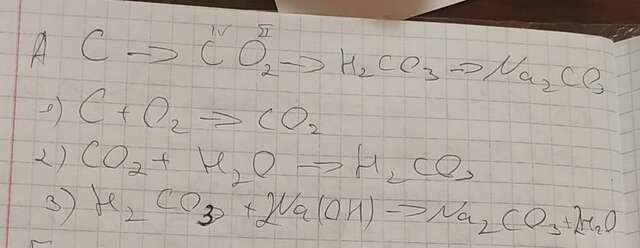 А C → C^IV O₂^II → H₂CO₃ → Na₂CO₃
1) C + O₂ → CO₂
2) CO₂ + H₂O → H₂CO₃
3) H₂CO₃ + 2Na(OH) → Na₂CO₃ + 2H₂O